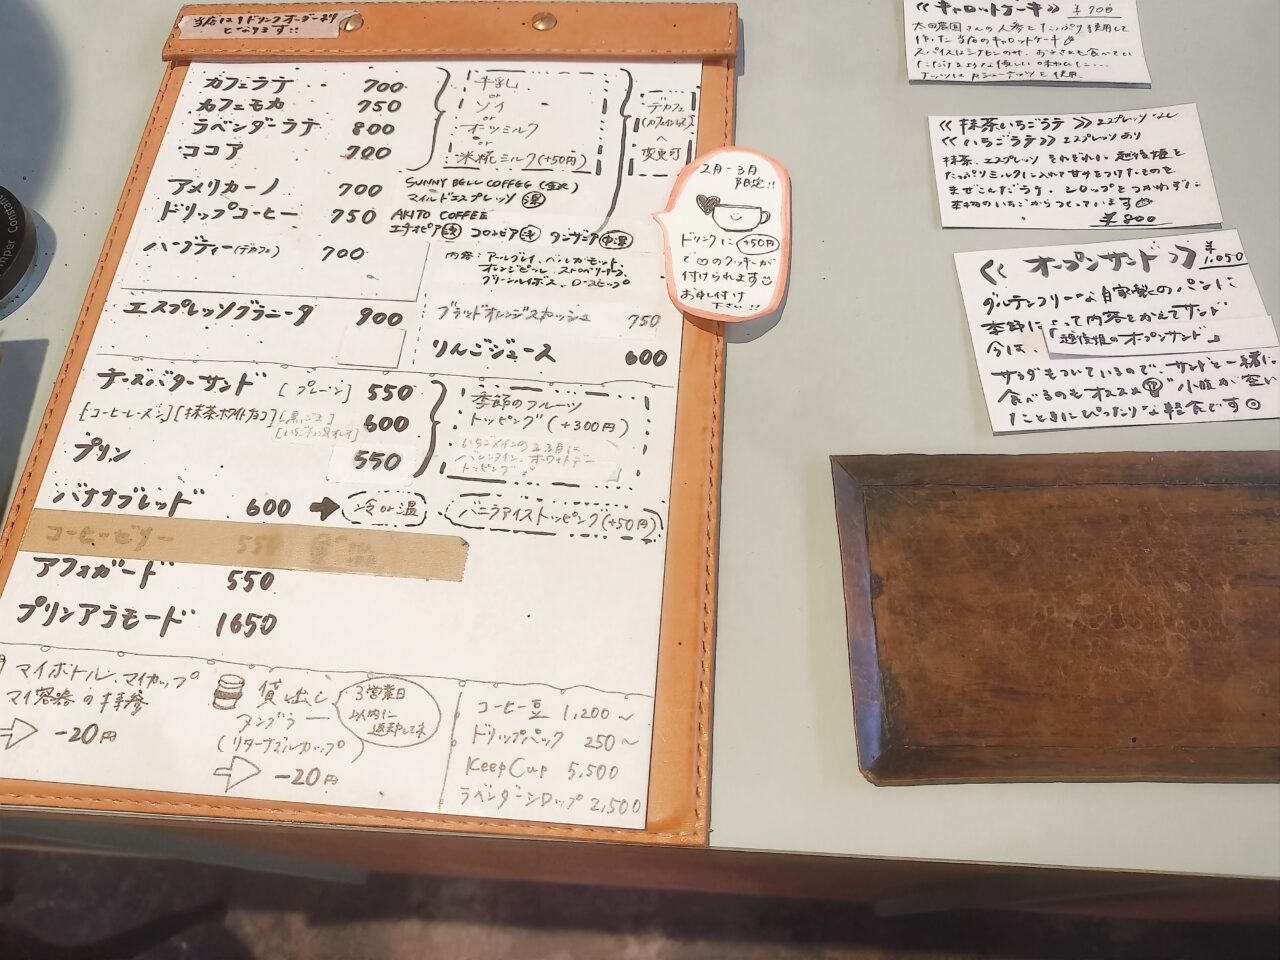 当店は1ドリンクオーダー制
となります!!
カフェラテ 700
カフェモカ 750
ラベンダーラテ 800
ココア 700
牛乳
or
ソイ
or
オーツミルク
or
米糀ミルク(+50円)
デカフェ
(カフェインレス)
へ
変更可
アメリカーノ 700
SUNNY BELL COFFEE
マイルドエスプレッソ 深
ドリップコーヒー 750
AKITO COFFEE
エチオピア 浅 コロンビア 浅 タンザニア 中深
ハーブティー(デカフェ) 700
内容:アールグレイ、ベルガモット、
オレンジピール、ストロベリーリーフ、
グリーンルイボス、ローズヒップ
エスプレッソグラニータ 900
ブラッドオレンジスカッシュ 750
りんごジュース 600
チーズバターサンド [プレーン] 550
[コーヒーレーズン][抹茶ホワイトチョコ] 600
プリン 550
季節のフルーツ
トッピング(+300円)
いちごメインの2、3月に
バレンタイン、ホワイトデー
トッピング
バナナブレッド 600 ➡ 冷or温
バニラアイストッピング(+50円)
コーヒーゼリー 550
アフォガード 550
プリンアラモード 1650
マイボトル、マイカップ
マイ容器の持参
⇨ -20円
貸出し
タンブラー
(リターナブルカップ)
⇨ -20円
3営業日
以内に
返却してネ
コーヒー豆 1,200〜
ドリップパック 250〜
KeepCup 5,500
ラベンダーシロップ 2,500
2月-3月
限定!!
ドリンクに +50円
で♡のクッキーが
付けられます
お申し付け
下さい!!
≪キャロットケーキ≫ ¥700
太田農園さんの人参をたっぷり使用して
作った当店のキャロットケーキ
スパイスはシナモンのみ、お子さまも食べてい
ただけるような優しい味わいに…
ナッツはカシューナッツを使用
≪抹茶いちごラテ≫エスプレッソなし
≪いちごラテ≫エスプレッソあり
抹茶、エスプレッソ それぞれに越後姫を
たっぷりミルクに入れて甘さをつけたものを
まぜこんだラテ。シロップをつかわずに
本物のいちごからつくっています
¥800
≪オープンサンド≫ ¥1,050
グルテンフリーな自家製のパンに
季節によって内容をかえてサンド
今は、「越後姫のオープンサンド」
サラダもついているので、サンドと一緒に
食べるのもオススメ 小腹が空い
たときにぴったりな軽食です☺